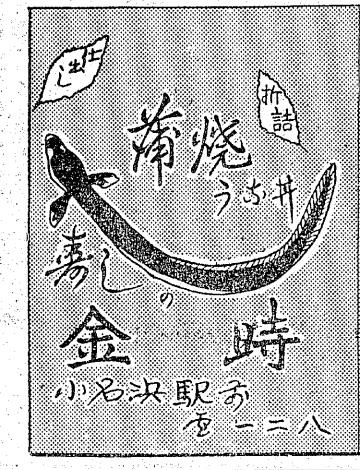 仕出し
折詰
蒲焼
うなぎ丼
寿しの
金時
小名浜駅前
電一二八